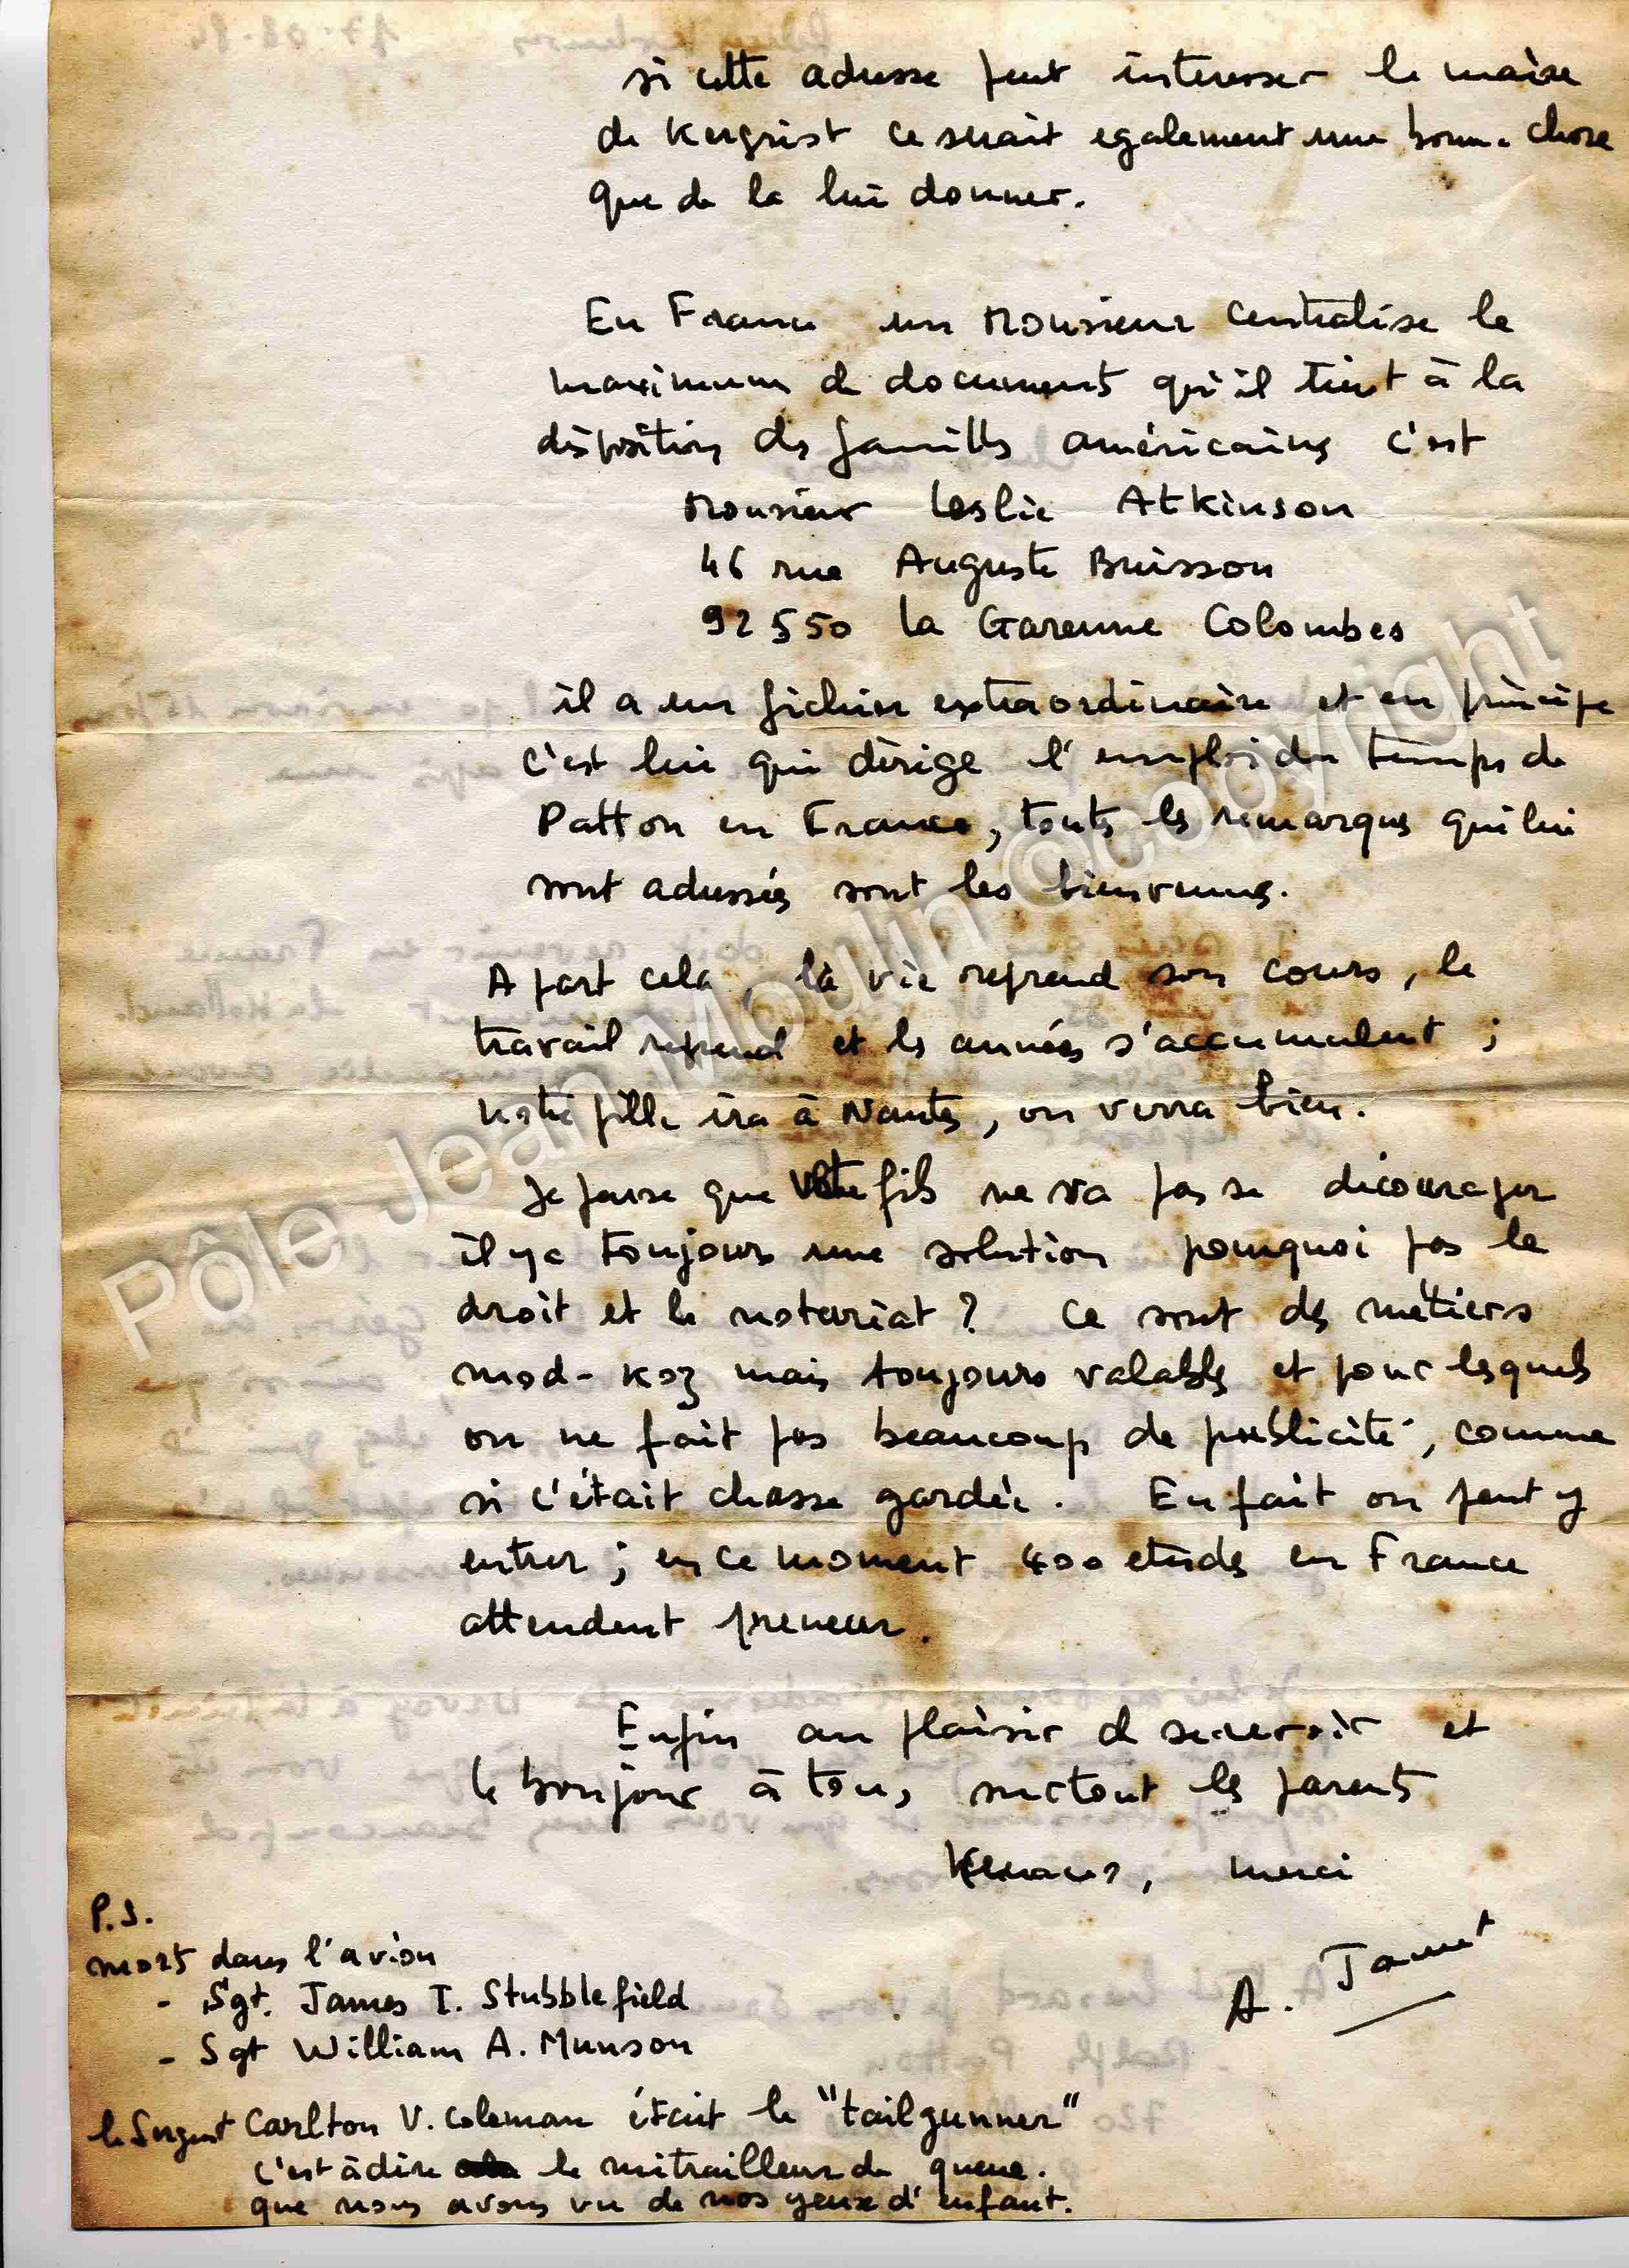 si cette adresse peut interesser le maire
de Kergrist ce serait egalement une bonne chose
que de la lui donner.
En France un Monsieur centralise le
maximum de documents qu'il tient à la
disposition des familles américaines c'est
Monsieur Leslie Atkinson
46 rue Auguste Buisson
92550 La Garenne Colombes
il a un fichier extraordinaire et en principe
c'est lui qui dirige l'emploi du temps de
Patton en France, toutes les remarques qui lui
sont adressées sont les bienvenues.
A part cela, la vie reprend son cours, le
travail reprend et les années s'accumulent ;
notre fille ira à Nantes, on verra bien.
Je pense que votre fils ne va pas se décourager
il y a toujours une solution pourquoi pas le
droit et le notariat ? Ce sont des métiers
mod-koz mais toujours valables et pour lesquels
on ne fait pas beaucoup de publicité, comme
si c'était chasse gardée. En fait on peut y
entrer ; en ce moment 400 etudes en France
attendent preneur.
Enfin au plaisir de se revoir et
le bonjour à tous, surtout les parents
merci
A. Jamet
P.S.
morts dans l'avion
- Sgt. James I. Stubblefield
- Sgt William A. Munson
le Sergent Carlton V. Coleman était le "tail gunner"
c'est à dire le mitrailleur de queue.
que nous avons vu de nos yeux d'enfant.
Pôle Jean Moulin ©copyright